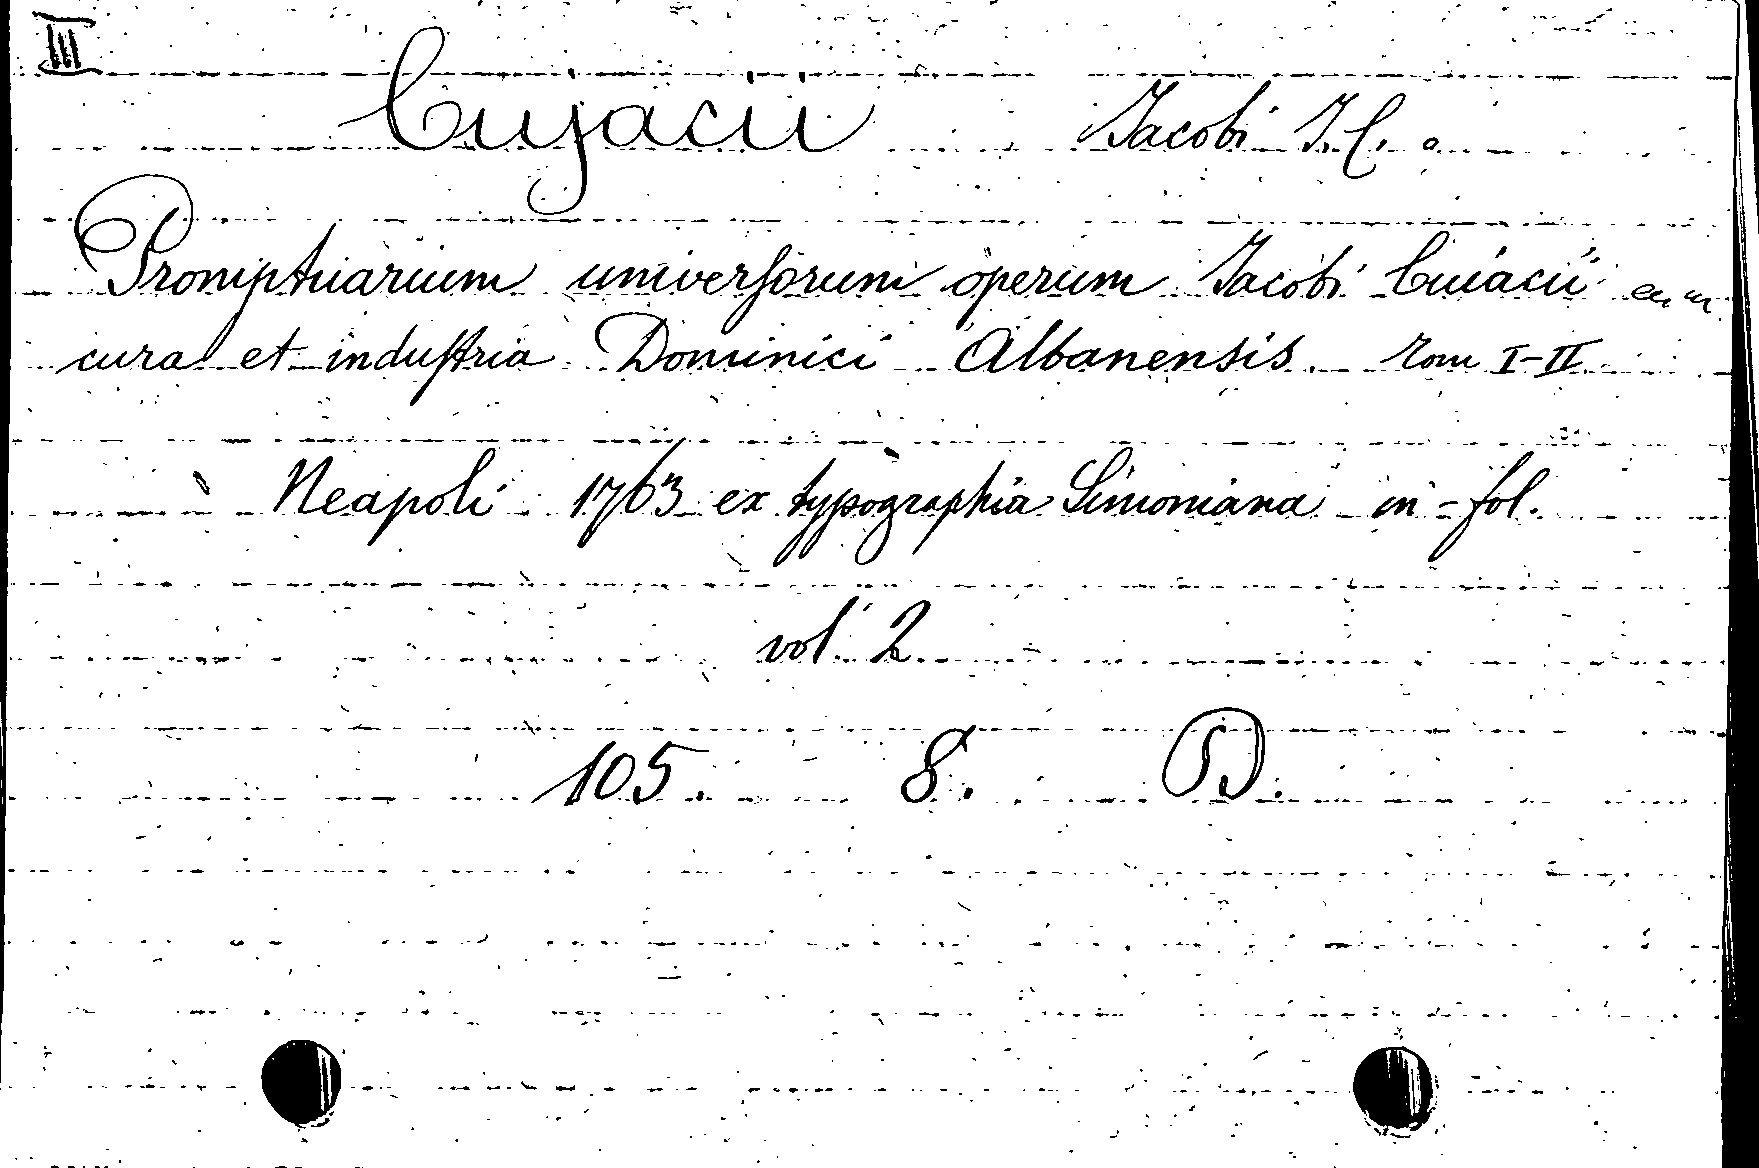 III
Cujacii Jacobi J.C.
Promptuarium universorum operum Jacobi Cuiacii
cura et industria Dominici Albanensis. Tom I-II
Neapoli 1763 ex typographia Simoniana in-fol.
vol. 2
105. 8. D.